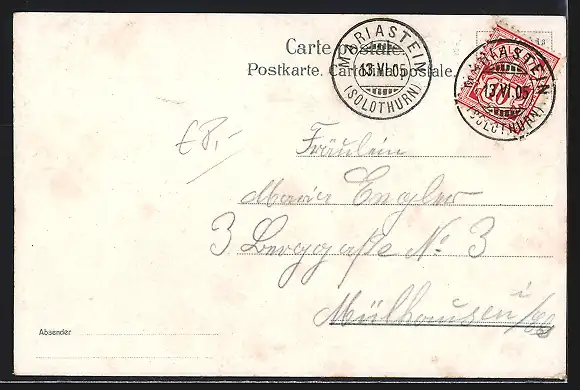 Carte postale.
Postkarte. Cartolina postale.
MARIASTEIN
13.VI.05
(SOLOTHURN)
MARIASTEIN
13.VI.05
(SOLOTHURN)
€8,-
Fräulein
Maria Engler
3 Berggaße No. 3
Mülhausen i/Els
Absender